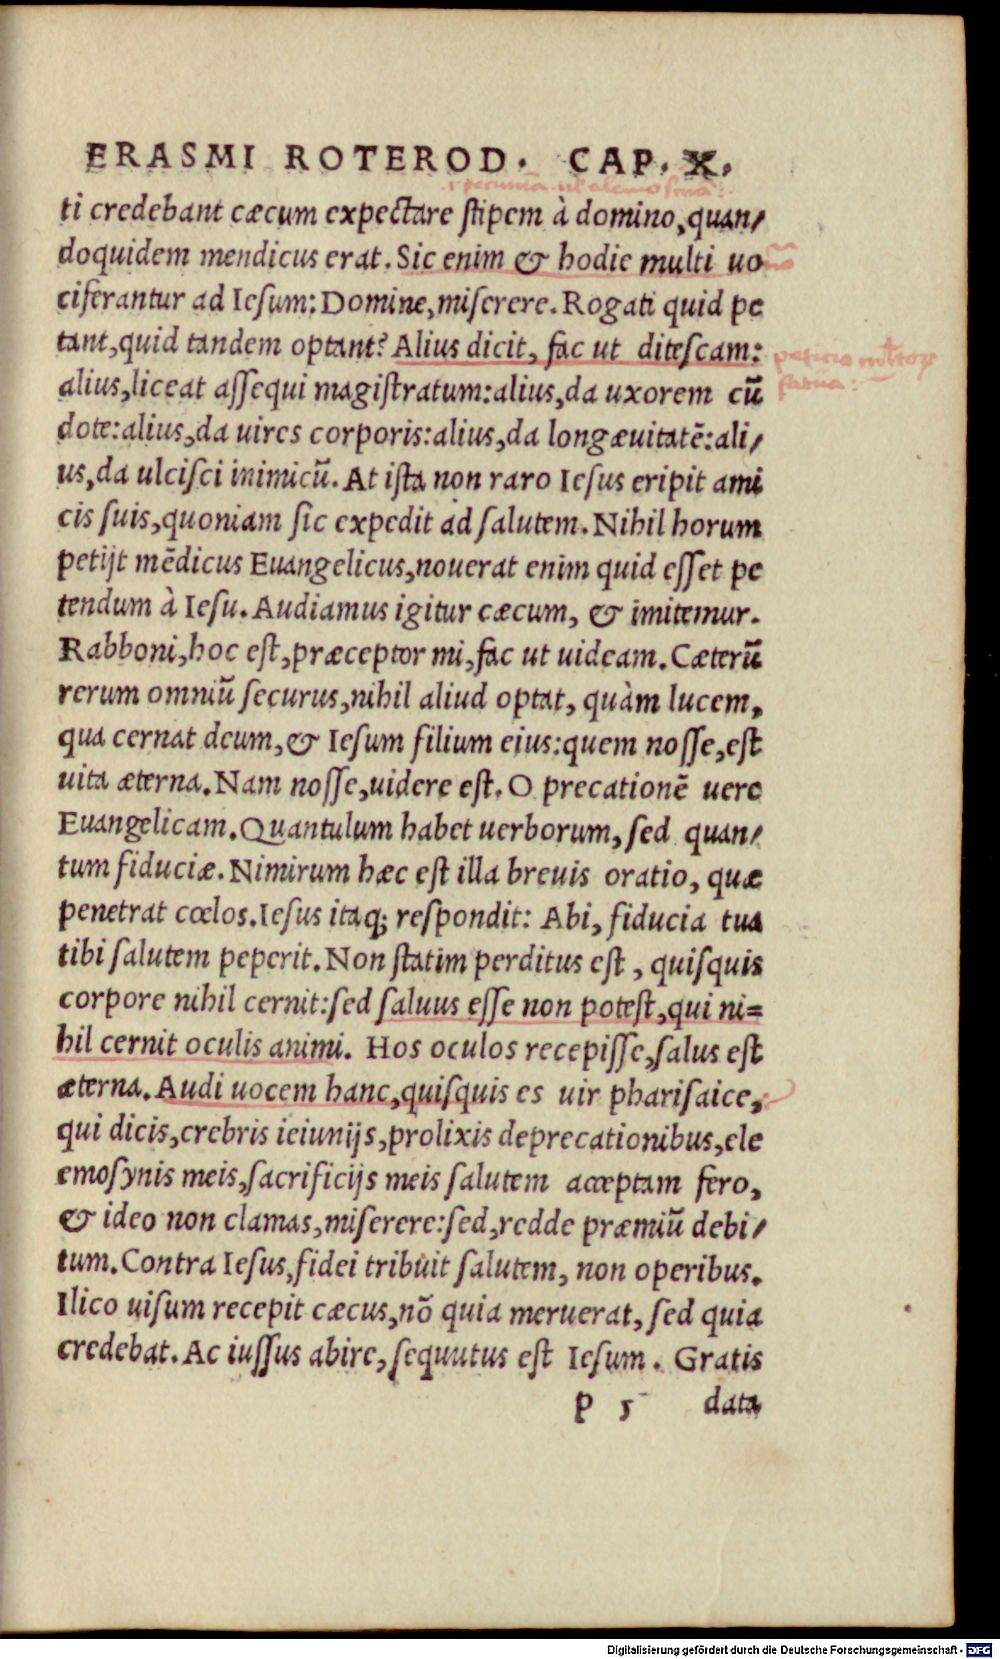 ERASMI ROTEROD. CAP. X.
ti credebant cæcum expectare stipem à domino, quan/
doquidem mendicus erat. Sic enim & hodie multi uo
ciferantur ad Iesum: Domine, miserere. Rogati quid pe
tant, quid tandem optant? Alius dicit, fac ut ditescam:
alius, liceat assequi magistratum: alius, da uxorem cū
dote: alius, da uires corporis: alius, da longæuitatē: ali/
us, da ulcisci inimicū. At ista non raro Iesus eripit ami
cis suis, quoniam sic expedit ad salutem. Nihil horum
petijt mēdicus Euangelicus, nouerat enim quid esset pe
tendum à Iesu. Audiamus igitur cæcum, & imitemur.
Rabboni, hoc est, præceptor mi, fac ut uideam. Cæterū
rerum omniū securus, nihil aliud optat, quàm lucem,
qua cernat deum, & Iesum filium eius: quem nosse, est
uita æterna. Nam nosse, uidere est. O precationē uere
Euangelicam. Quantulum habet uerborum, sed quan/
tum fiduciæ. Nimirum hæc est illa breuis oratio, quæ
penetrat cœlos. Iesus itaq; respondit: Abi, fiducia tua
tibi salutem peperit. Non statim perditus est, quisquis
corpore nihil cernit: sed saluus esse non potest, qui ni=
hil cernit oculis animi. Hos oculos recepisse, salus est
æterna. Audi uocem hanc, quisquis es uir pharisaice,
qui dicis, crebris ieiunijs, prolixis deprecationibus, ele
emosynis meis, sacrificijs meis salutem acceptam fero,
& ideo non clamas, miserere: sed, redde præmiū debi/
tum. Contra Iesus, fidei tribuit salutem, non operibus.
Ilico uisum recepit cæcus, nō quia meruerat, sed quia
credebat. Ac iussus abire, sequutus est Iesum. Gratis
p 5 data
Digitalisierung gefördert durch die Deutsche Forschungsgemeinschaft - DFG